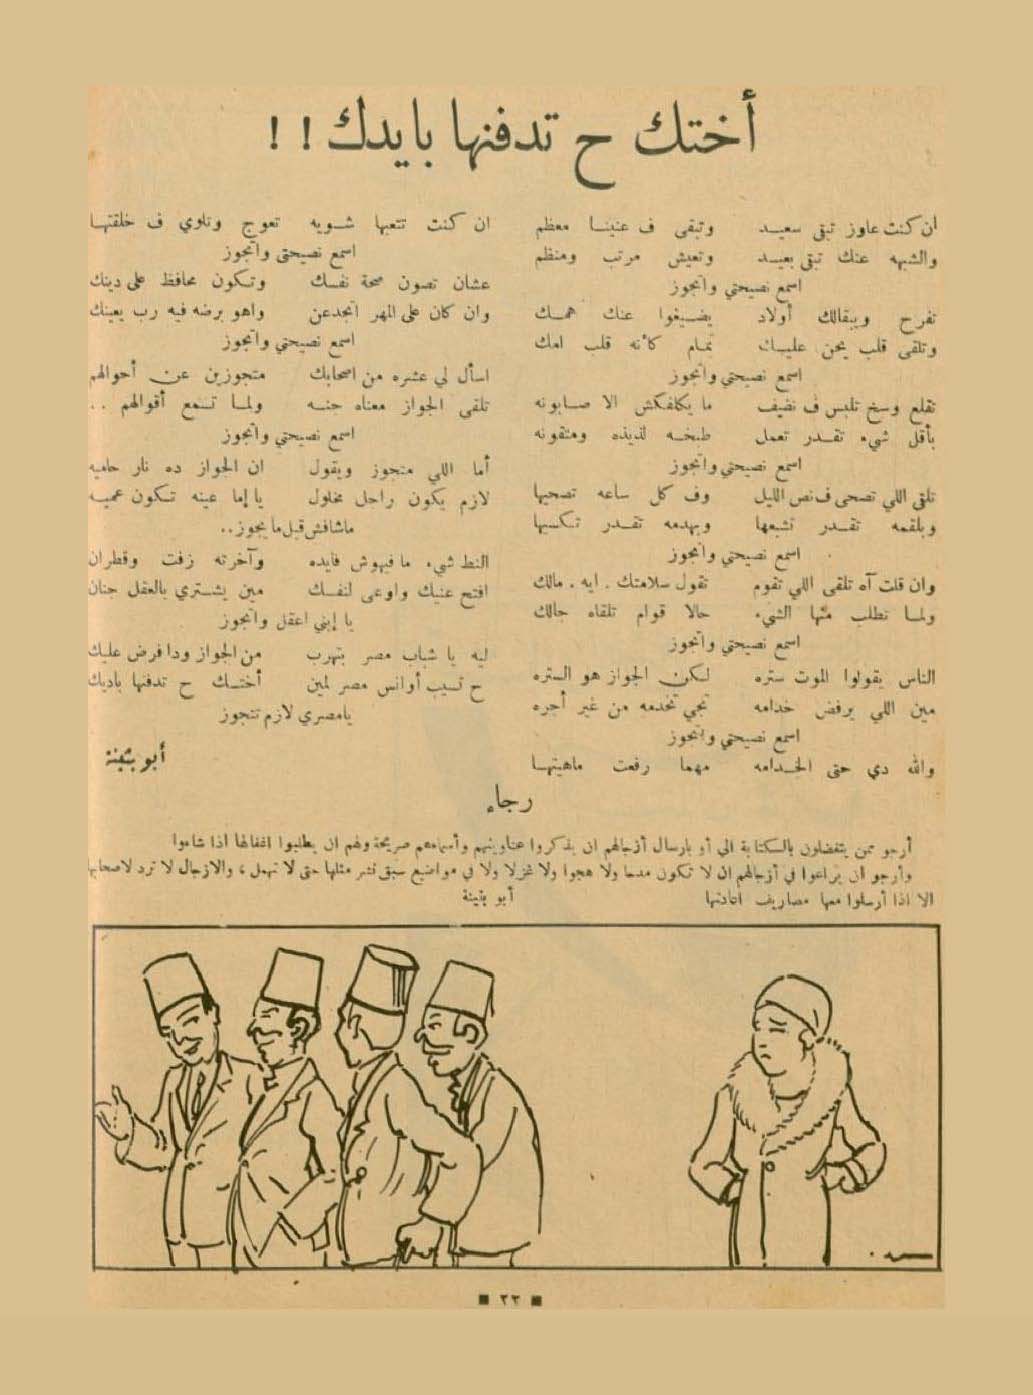 أختك ح تدفنها بايدك !!
ان كنت عاوز تبقى سعيد وتبقى ف عنينا معظم
والشبهه عنك تبقى بعيد وتعيش مرتب ومنظم
اسمع نصيحتي واتجوز
تفرح ويبقالك أولاد يضيعوا عنك همك
وتلقى قلب يحن عليك تمام كأنه قلب امك
اسمع نصيحتي واتجوز
تقلع وسخ تلبس ف نضيف ما يكلفكش الا صابونه
بأقل شيء تقدر تعمل طبخه لذيذه ومتقونه
اسمع نصيحتي واتجوز
تلقى اللي تصحى ف نص الليل وف كل ساعه تصحيها
وبلقمه تقدر تشبعها وبهدمه تقدر تكسيها
اسمع نصيحتي واتجوز
وان قلت آه تلقى اللي تقوم تقول سلامتك . ايه . مالك
ولما تطلب منها الشيء حالا قوام تلقاه جالك
اسمع نصيحتي واتجوز
الناس يقولوا الموت ستره لكن الجواز هو الستره
مين اللي يرفض خدامه تجي تخدمه من غير أجره
اسمع نصيحتي واتجوز
والله دي حتى الخدامه مهما رفعت ماهيتها
ان كنت تتعبها شويه تعوج وتلوي ف خلقتها
اسمع نصيحتي واتجوز
عشان تصون صحة نفسك وتكون محافظ على دينك
وان كان على المهر اتجدعن واهو برضه فيه رب يعينك
اسمع نصيحتي واتجوز
اسأل لي عشره من اصحابك متجوزين عن أحوالهم
تلقى الجواز معناه جنه ولما تسمع أقوالهم ..
اسمع نصيحتي واتجوز
أما اللي متجوز ويقول ان الجواز ده نار حاميه
لازم يكون راجل مخلول يا إما عينه تكون عميه
ماشافش قبل ما يجوز ..
النط شيء ما فيهوش فايده وآخرته زفت وقطران
افتح عنيك واوعى لنفسك مين يشتري بالعقل جنان
يا إبني اعقل واتجوز
ليه يا شباب مصر بتهرب من الجواز ودا فرض عليك
ح تسيب أوانس مصر لمين أختك ح تدفنها باديك
يا مصري لازم تتجوز
أبو بثينة
رجاء
أرجو ممن يتفضلون بالكتابة الي أو بارسال أزجالهم ان يذكروا عناوينهم وأسماءهم صريحة ولهم ان يطلبوا اغفالها اذا شاءوا
وأرجو ان يراعوا في أزجالهم ان لا تكون مدحا ولا هجوا ولا غزلا ولا في مواضيع سبق نشر مثلها حتى لا تهمل ، والازجال لا ترد لاصحابها
الا اذا أرسلوا معها مصاريف اعادتها أبو بثينة
٢٣